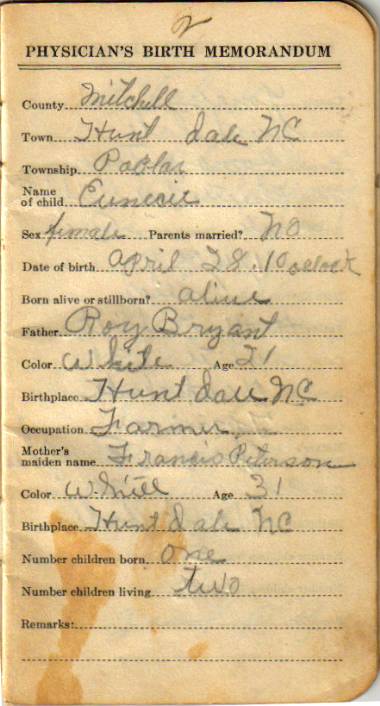 2
PHYSICIAN'S BIRTH MEMORANDUM
County Mitchell
Town Hunt dale NC
Township Poplar
Name of child Eunecie
Sex female Parents married? No
Date of birth April 28. 10 oclock
Born alive or stillborn? alive
Father Roy Bryant
Color White Age 21
Birthplace Hunt dale NC
Occupation Farmer
Mother's maiden name Francis Peterson
Color White Age 31
Birthplace Hunt dale NC
Number children born one
Number children living two
Remarks: